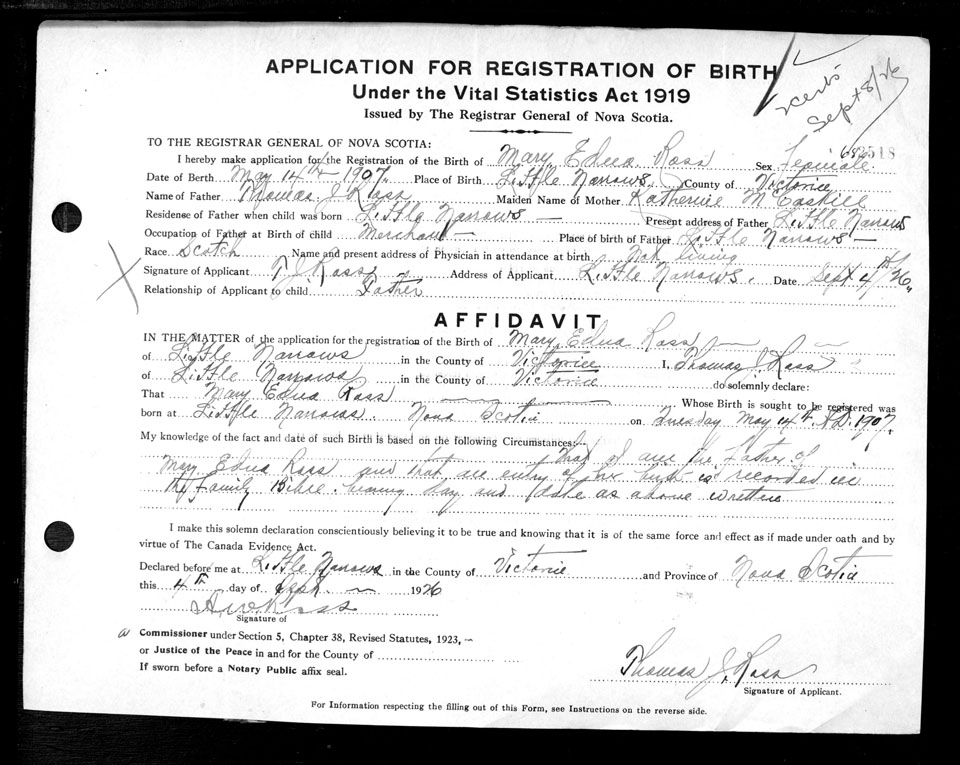 APPLICATION FOR REGISTRATION OF BIRTH
Under the Vital Statistics Act 1919
Issued by The Registrar General of Nova Scotia.
Sept 8/26
TO THE REGISTRAR GENERAL OF NOVA SCOTIA:
I hereby make application for the Registration of the Birth of Mary Edna Ross Sex Female
Date of Berth May 14th 1907 Place of Birth Little Narrows County of Victoria
Name of Father Thomas J. Ross Maiden Name of Mother Katherine McCaskill
Residense of Father when child was born Little Narrows Present address of Father Little Narrows
Occupation of Father at Birth of child Merchant Place of birth of Father Little Narrows
Race Scotch Name and present address of Physician in attendance at birth Not living
Signature of Applicant T J Ross Address of Applicant Little Narrows. Date Sept 4th/26.
Relationship of Applicant to child Father
AFFIDAVIT
IN THE MATTER of the application for the registration of the Birth of Mary Edna Ross
of Little Narrows in the County of Victoria I, Thomas J. Ross
of Little Narrows in the County of Victoria do solemnly declare:
That Mary Edna Ross Whose Birth is sought to be registered was
born at Little Narrows. Nova Scotia on Tuesday May 14th A.D. 1907.
My knowledge of the fact and date of such Birth is based on the following Circumstances:— That I am the Father of
Mary Edna Ross and that an entry of her birth is recorded in
the Family Bible bearing day and date as above written
I make this solemn declaration conscientiously believing it to be true and knowing that it is of the same force and effect as if made under oath and by
virtue of The Canada Evidence Act.
Declared before me at Little Narrows in the County of Victoria and Province of Nova Scotia
this 4th day of Sept 1926
Signature of
a Commissioner under Section 5, Chapter 38, Revised Statutes, 1923,
or Justice of the Peace in and for the County of
If sworn before a Notary Public affix seal.
Thomas J. Ross
Signature of Applicant.
For Information respecting the filling out of this Form, see Instructions on the reverse side.